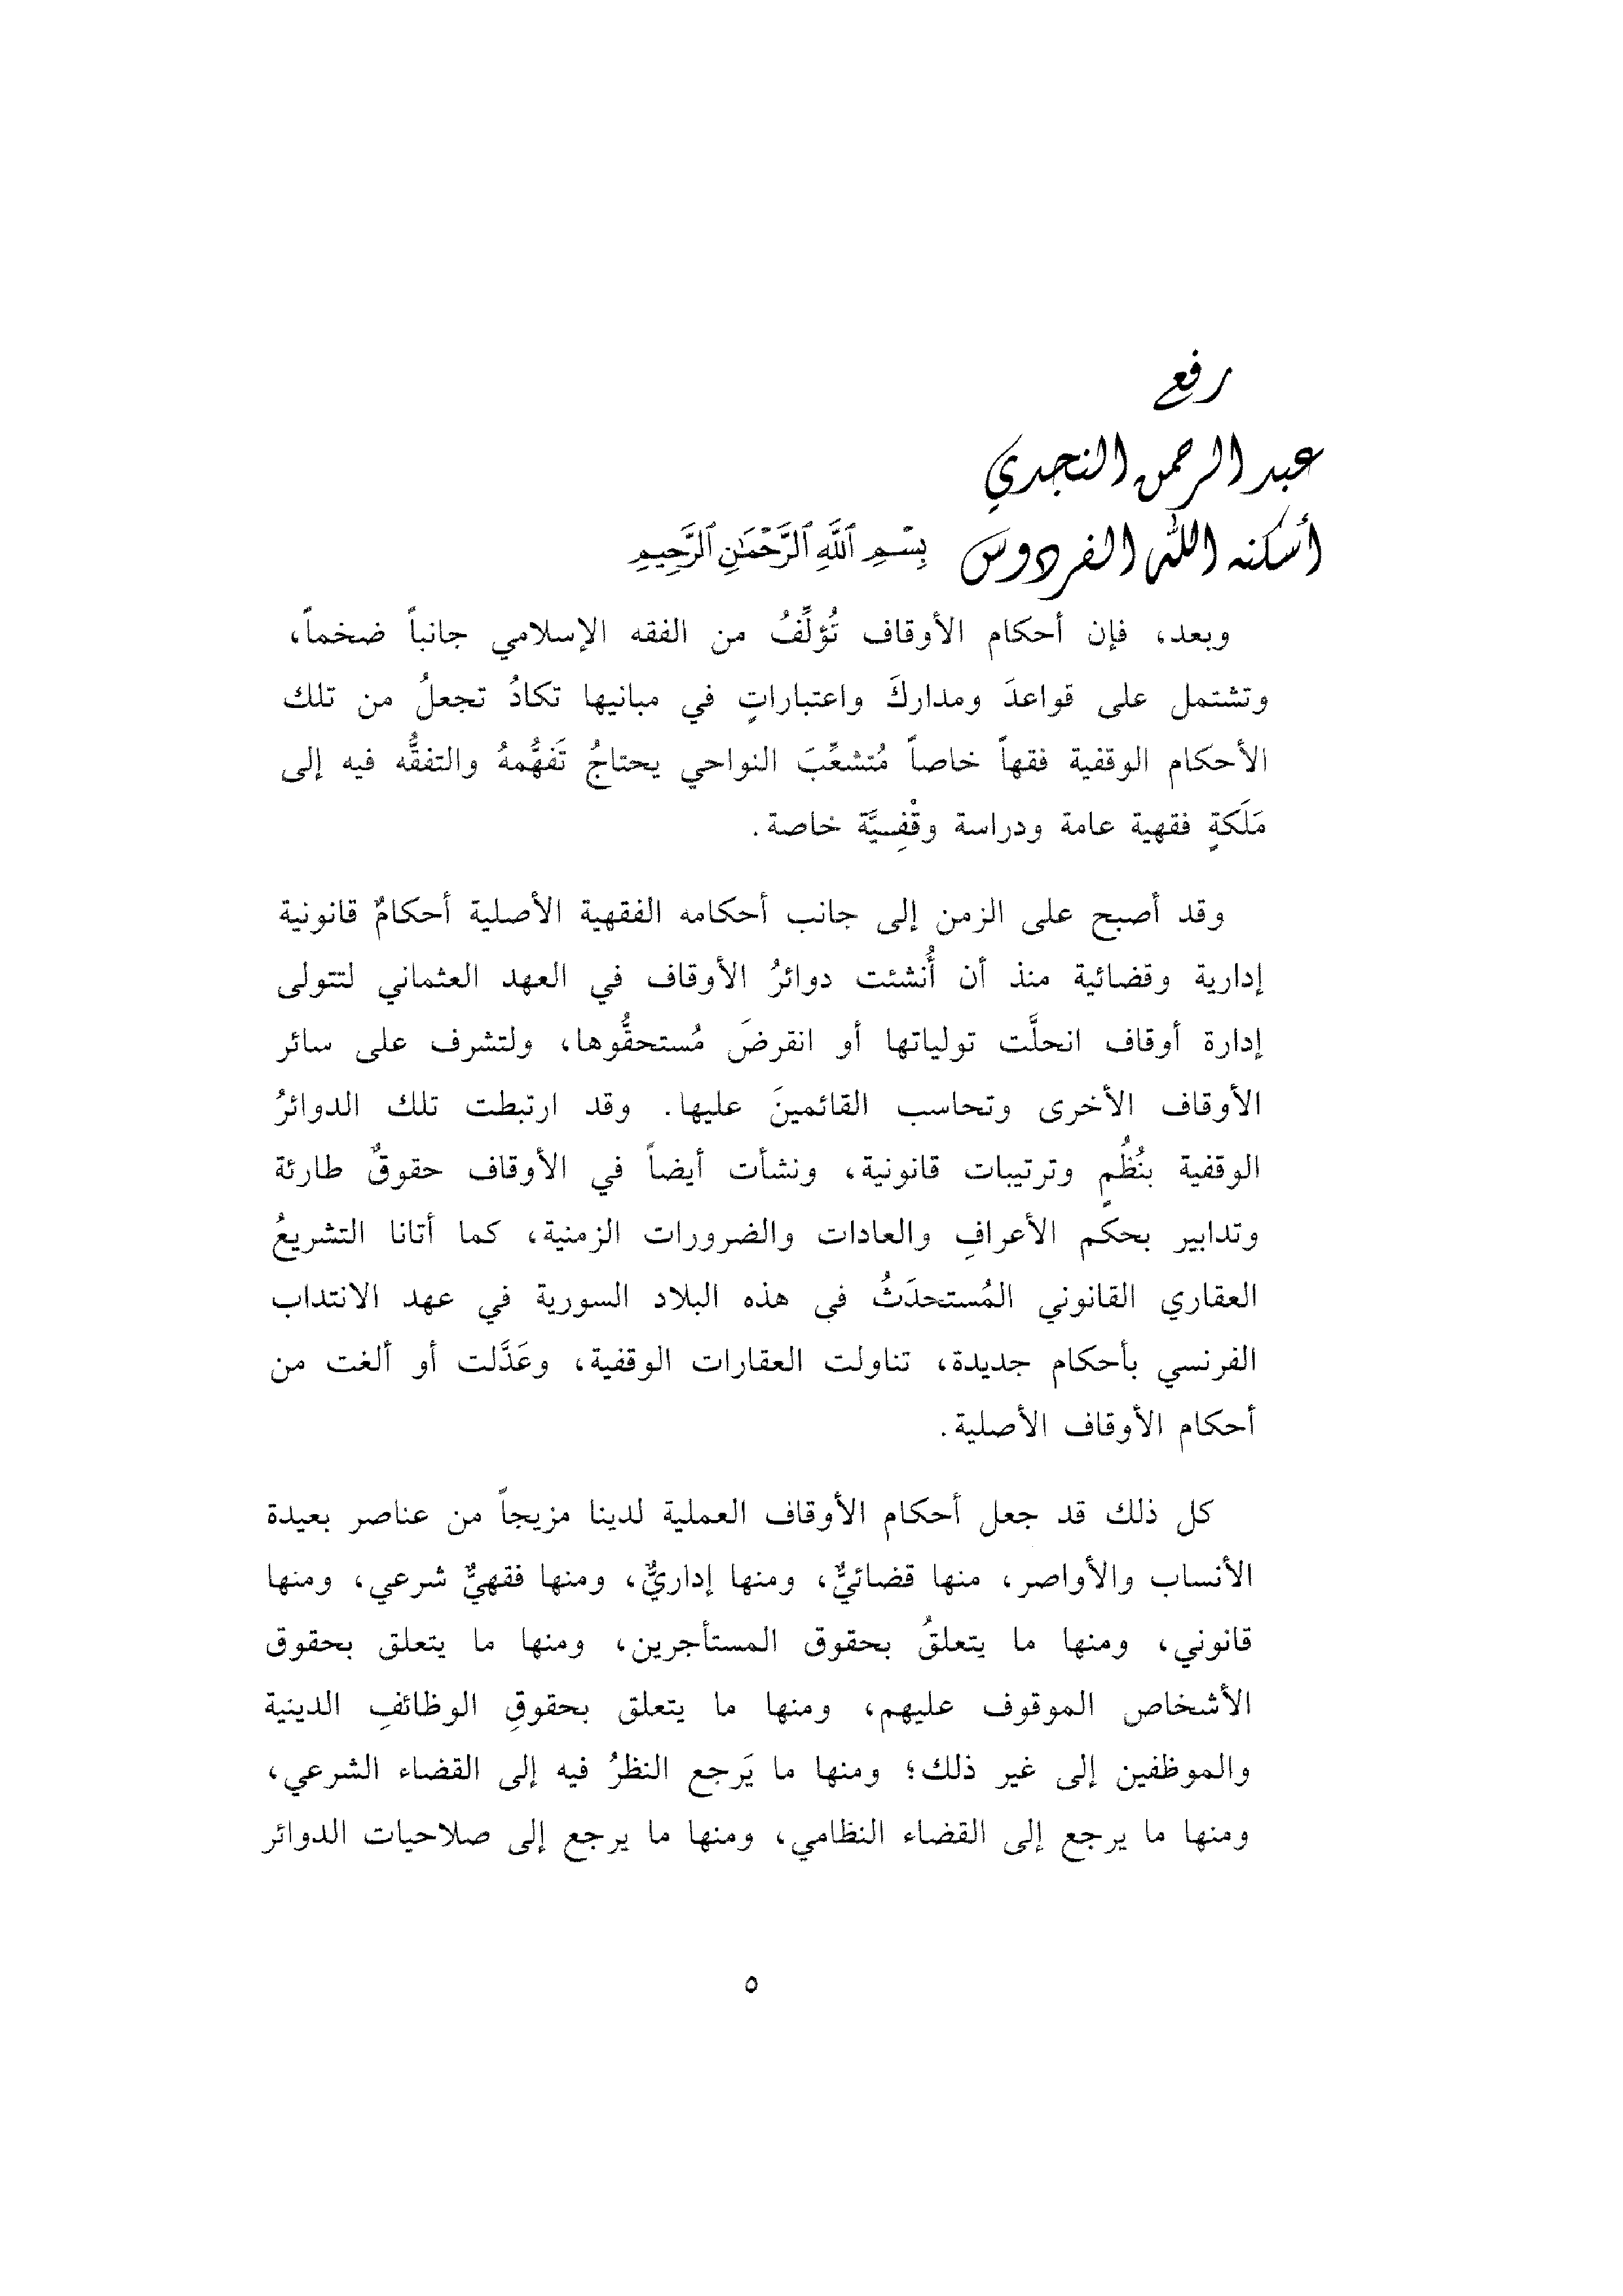 رفع
عبد الرحمن النجدي
أسكنه الله الفردوس
بِسْمِ ٱللَّهِ ٱلرَّحْمَٰنِ ٱلرَّحِيمِ
وبعد، فإن أحكام الأوقاف تُؤلِّفُ من الفقه الإسلامي جانباً ضخماً،
وتشتمل على قواعدَ ومداركَ واعتباراتٍ في مبانيها تكادُ تجعلُ من تلك
الأحكام الوقفية فقهاً خاصاً مُتشعِّبَ النواحي يحتاجُ تَفهُّمهُ والتفقُّه فيه إلى
مَلَكةٍ فقهية عامة ودراسة وقْفِيَّة خاصة.
وقد أصبح على الزمن إلى جانب أحكامه الفقهية الأصلية أحكامٌ قانونية
إدارية وقضائية منذ أن أُنشئت دوائرُ الأوقاف في العهد العثماني لتتولى
إدارة أوقاف انحلَّت تولياتها أو انقرضَ مُستحقُّوها، ولتشرف على سائر
الأوقاف الأخرى وتحاسب القائمينَ عليها. وقد ارتبطت تلك الدوائرُ
الوقفية بنُظُمٍ وترتيبات قانونية، ونشأت أيضاً في الأوقاف حقوقٌ طارئة
وتدابير بحكم الأعرافِ والعادات والضرورات الزمنية، كما أتانا التشريعُ
العقاري القانوني المُستحدَثُ في هذه البلاد السورية في عهد الانتداب
الفرنسي بأحكام جديدة، تناولت العقارات الوقفية، وعَدَّلت أو ألغت من
أحكام الأوقاف الأصلية.
كل ذلك قد جعل أحكام الأوقاف العملية لدينا مزيجاً من عناصر بعيدة
الأنساب والأواصر، منها قضائيٌّ، ومنها إداريٌّ، ومنها فقهيٌّ شرعي، ومنها
قانوني، ومنها ما يتعلقُ بحقوق المستأجرين، ومنها ما يتعلق بحقوق
الأشخاص الموقوف عليهم، ومنها ما يتعلق بحقوقِ الوظائفِ الدينية
والموظفين إلى غير ذلك؛ ومنها ما يَرجع النظرُ فيه إلى القضاء الشرعي،
ومنها ما يرجع إلى القضاء النظامي، ومنها ما يرجع إلى صلاحيات الدوائر
٥